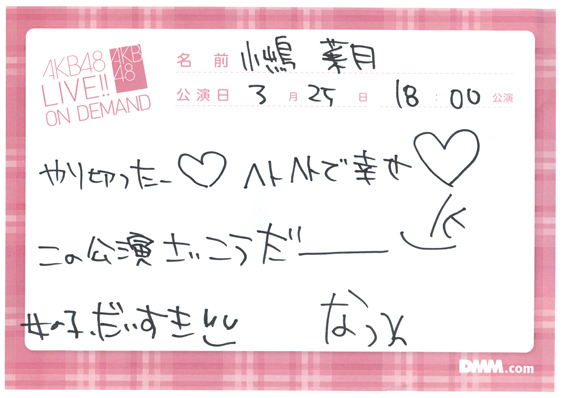 AKB48
LIVE!!
ON DEMAND
AKB
48
名前 小嶋 菜月
公演日 3月25日 18:00公演
やり切ったー♡ ヘトヘトで幸せ♡
この公演さいこうだー
女の子、だいすき
なつき
DMM.com